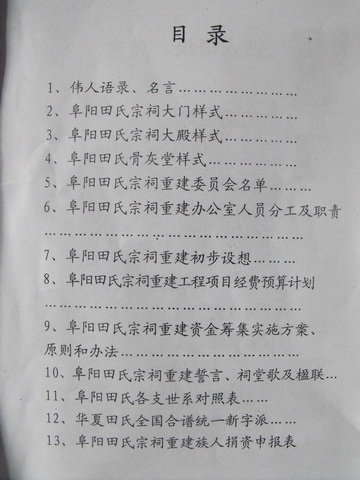 目录
1、伟人语录、名言……………………
2、阜阳田氏宗祠大门样式……………
3、阜阳田氏宗祠大殿样式……………
4、阜阳田氏骨灰堂样式………………
5、阜阳田氏宗祠重建委员会名单………
6、阜阳田氏宗祠重建办公室人员分工及职责
……………………………………
7、阜阳田氏宗祠重建初步设想…………
8、阜阳田氏宗祠重建工程项目经费预算计划
……………………………………
9、阜阳田氏宗祠重建资金筹集实施方案、
原则和办法……………………………
10、阜阳田氏宗祠重建誓言、祠堂歌及楹联…
11、阜阳田氏各支世系对照表…………
12、华夏田氏全国合谱统一新字派………
13、阜阳田氏宗祠重建族人捐资申报表